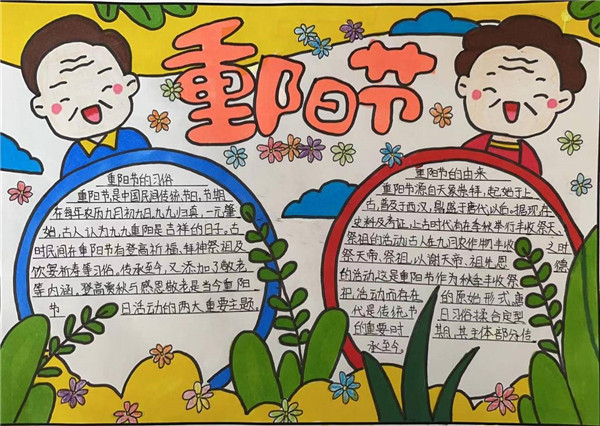 重阳节
重阳节的习俗
重阳节是中国民间传统节日,节期
在每年农历九月初九日,九九归真,一元肇
始,古人认为九九重阳是吉祥的日子。古
时民间在重阳节有登高祈福、拜神祭祖及
饮宴祈寿等习俗。传承至今,又添加了敬老
等内涵,登高赏秋与感恩敬老是当今重阳
节日活动的两大重要主题
重阳节的由来
重阳节源自天象崇拜,起始于上
古,普及于西汉,鼎盛于唐代以后。据现存
史料及考证,上古时代有在季秋举行丰收祭天、
祭祖的活动;古人在九月农作物丰收之时
祭天帝、祭祖,以谢天帝、祖先恩德
的活动,这是重阳节作为秋季丰收祭
祀活动而存在的原始形式,重
代是传统节日习俗揉合定型
的重要时期,其主体部分传
承至今。